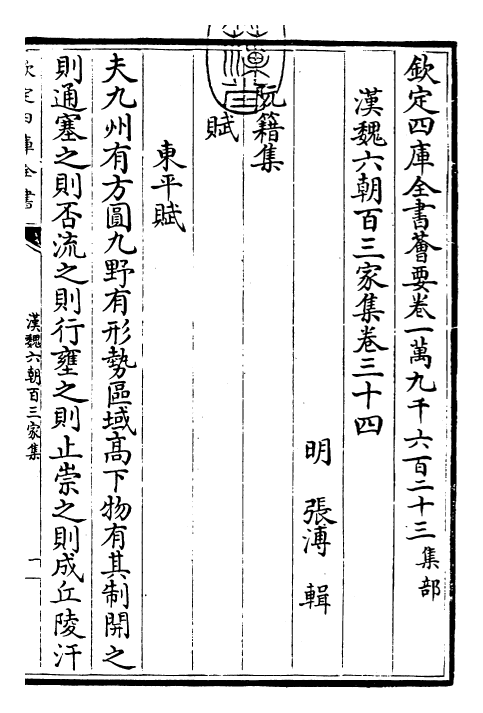 欽定四庫全書薈要卷一萬九千六百二十三集部
漢魏六朝百三家集卷三十四
明張溥輯
阮籍集
賦
東平賦
夫九州有方圓九野有形勢區域高下物有其制開之
則通塞之則否流之則行壅之則止崇之則成丘陵汙
欽定四庫全書
漢魏六朝百三家集
一